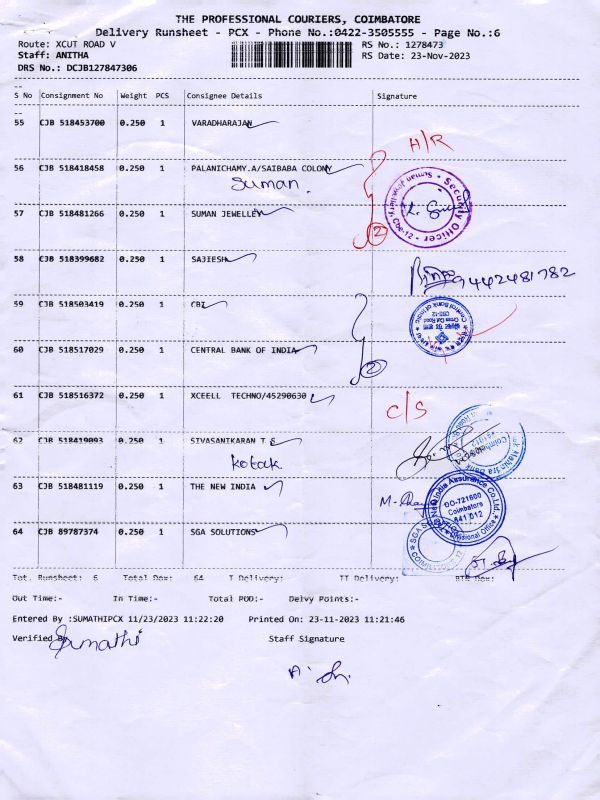 THE PROFESSIONAL COURIERS, COIMBATORE
Delivery Runsheet - PCX - Phone No.:0422-3505555 - Page No.:6
Route: XCUT ROAD V RS No.: 1278473
Staff: ANITHA RS Date: 23-Nov-2023
DRS No.: DCJB127847306
S No Consignment No Weight PCS Consignee Details Signature
55 CJB 518453700 0.250 1 VARADHARAJAN
H/R
56 CJB 518418458 0.250 1 PALANICHAMY.A/SAIBABA COLONY
Suman
Security Officer
Suman Jewellery, Cbe-12
57 CJB 518481266 0.250 1 SUMAN JEWELLEY
2
58 CJB 518399682 0.250 1 SAJIESH
9442481782
59 CJB 518503419 0.250 1 CBI
Central Bank of India
Cross Cut Road
CBE-12
60 CJB 518517029 0.250 1 CENTRAL BANK OF INDIA
2
61 CJB 518516372 0.250 1 XCEELL TECHNO/45290630
C/S
62 CJB 518419093 0.250 1 SIVASANKARAN T S
kotak
63 CJB 518481119 0.250 1 THE NEW INDIA
New India Assurance Co. Ltd.
DO-721600
Coimbatore
641 012
Divisional Office
64 CJB 89787374 0.250 1 SGA SOLUTIONS
Tot. Runsheet: 6 Total Dox: 64 I Delivery: II Delivery:
Out Time:- In Time:- Total POD:- Delvy Points:-
Entered By :SUMATHIPCX 11/23/2023 11:22:20 Printed On: 23-11-2023 11:21:46
Verified By Staff Signature
Sumathi